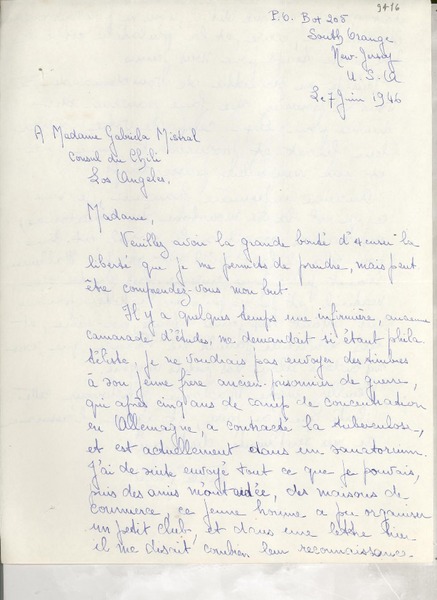 9416
P.O. Box 205
South Orange
New-Jersey
U.S.A
Le 7 Juin 1946
A Madame Gabriela Mistral
Consul du Chili
Los Angeles.
Madame,
Veuillez avoir la grande bonté d'excuser la
liberté que je me permets de prendre, mais peut
être comprendez-vous mon but
Il y a quelques temps une infirmière, ancienne
camarade d'études, me demandait si étant phila
téliste, je ne voudrais pas envoyer des timbres
à son jeune frère ancien prisonnier de guerre,
qui après cinq ans de camp de concentration
en Allemagne, a contracté la tuberculose,
et est actuellement dans un sanatorium.
J'ai de suite envoyé tout ce que je pouvais,
puis des amis m'ont aidée, des maisons de
commerce, ce jeune homme a pu organiser
un petit club, et dans une lettre hier
il me disait, combien leur reconnaissance